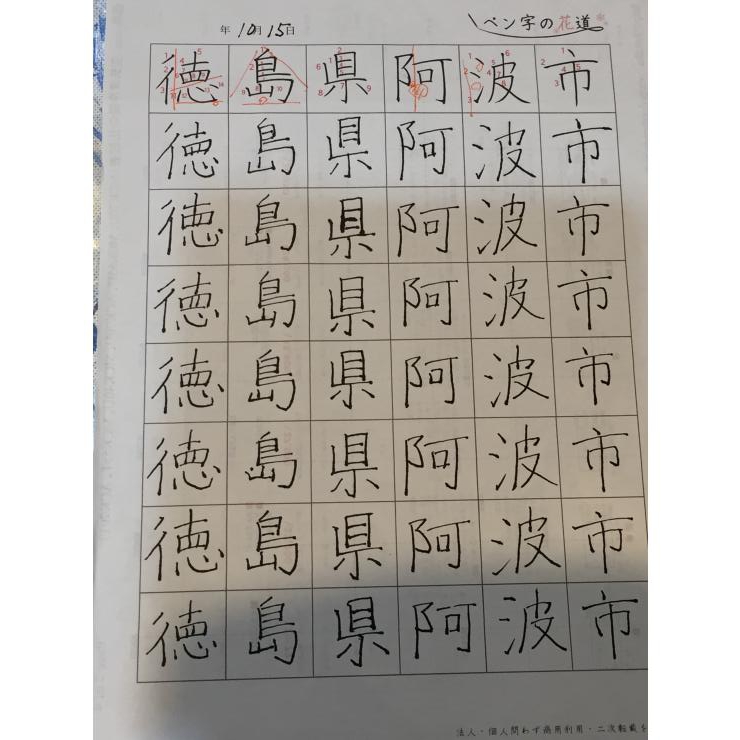 年10月15日
ペン字の花道
徳島県阿波市
徳島県阿波市
徳島県阿波市
徳島県阿波市
徳島県阿波市
徳島県阿波市
徳島県阿波市
徳島県阿波市
法人・個人問わず商用利用・二次転載を